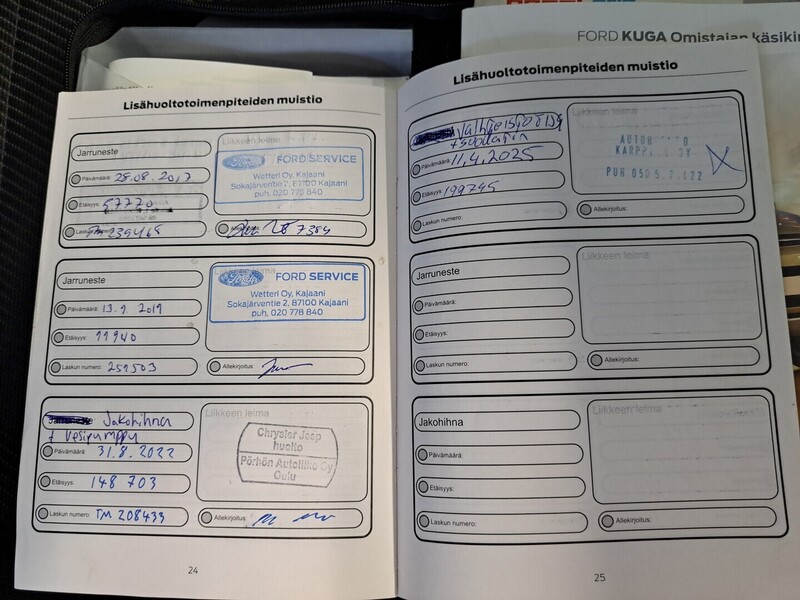 FORD KUGA Omistajan käsikir
Lisähuoltotoimenpiteiden muistio
Jarruneste
Liikkeen leima
Ford FORD SERVICE
Wetteri Oy, Kajaani
Sokajärventie 2, 87100 Kajaani
puh. 020 778 840
Päivämäärä: 28.08.2017
Etäisyys: 57770
TM 239465
7384
Jarruneste
Liikkeen leima
Ford FORD SERVICE
Wetteri Oy, Kajaani
Sokajärventie 2, 87100 Kajaani
puh. 020 778 840
Päivämäärä: 13.9.2019
Etäisyys: 99940
Laskun numero: 259503
Allekirjoitus:
Jakohihna
+ vesipumppu
Liikkeen leima
Chrysler Jeep
huolto
Pörhön Autoliike Oy
Oulu
Päivämäärä: 31.8.2022
Etäisyys: 148 703
Laskun numero: TM 208433
Allekirjoitus:
24
Lisähuoltotoimenpiteiden muistio
+ suodatin
Liikkeen leima
Päivämäärä: 11.4.2025
Etäisyys: 199745
Laskun numero:
Allekirjoitus:
Jarruneste
Liikkeen leima
Päivämäärä:
Etäisyys:
Laskun numero:
Allekirjoitus:
Jakohihna
Liikkeen leima
Päivämäärä:
Etäisyys:
Laskun numero:
Allekirjoitus:
25